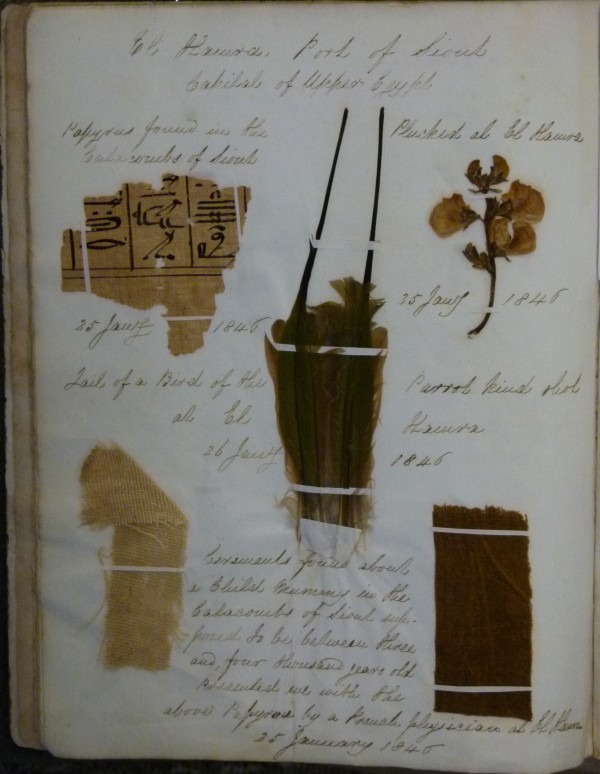 El Hamra. Port of Siout
Capital of Upper Egypt
Papyrus found in the
Catacombs of Siout
25 Jany 1846
Plucked at El Hamra
25 Jany 1846
Tail of a Bird of the Parrot kind shot
at El Hamra
26 Jany 1846
Cerements found about
a Child Mummy in the
Catacombs of Siout sup-
posed to be between three
and four thousand years old
Presented me with the
above Papyrus by a French physician at El Hamra
25 January 1846